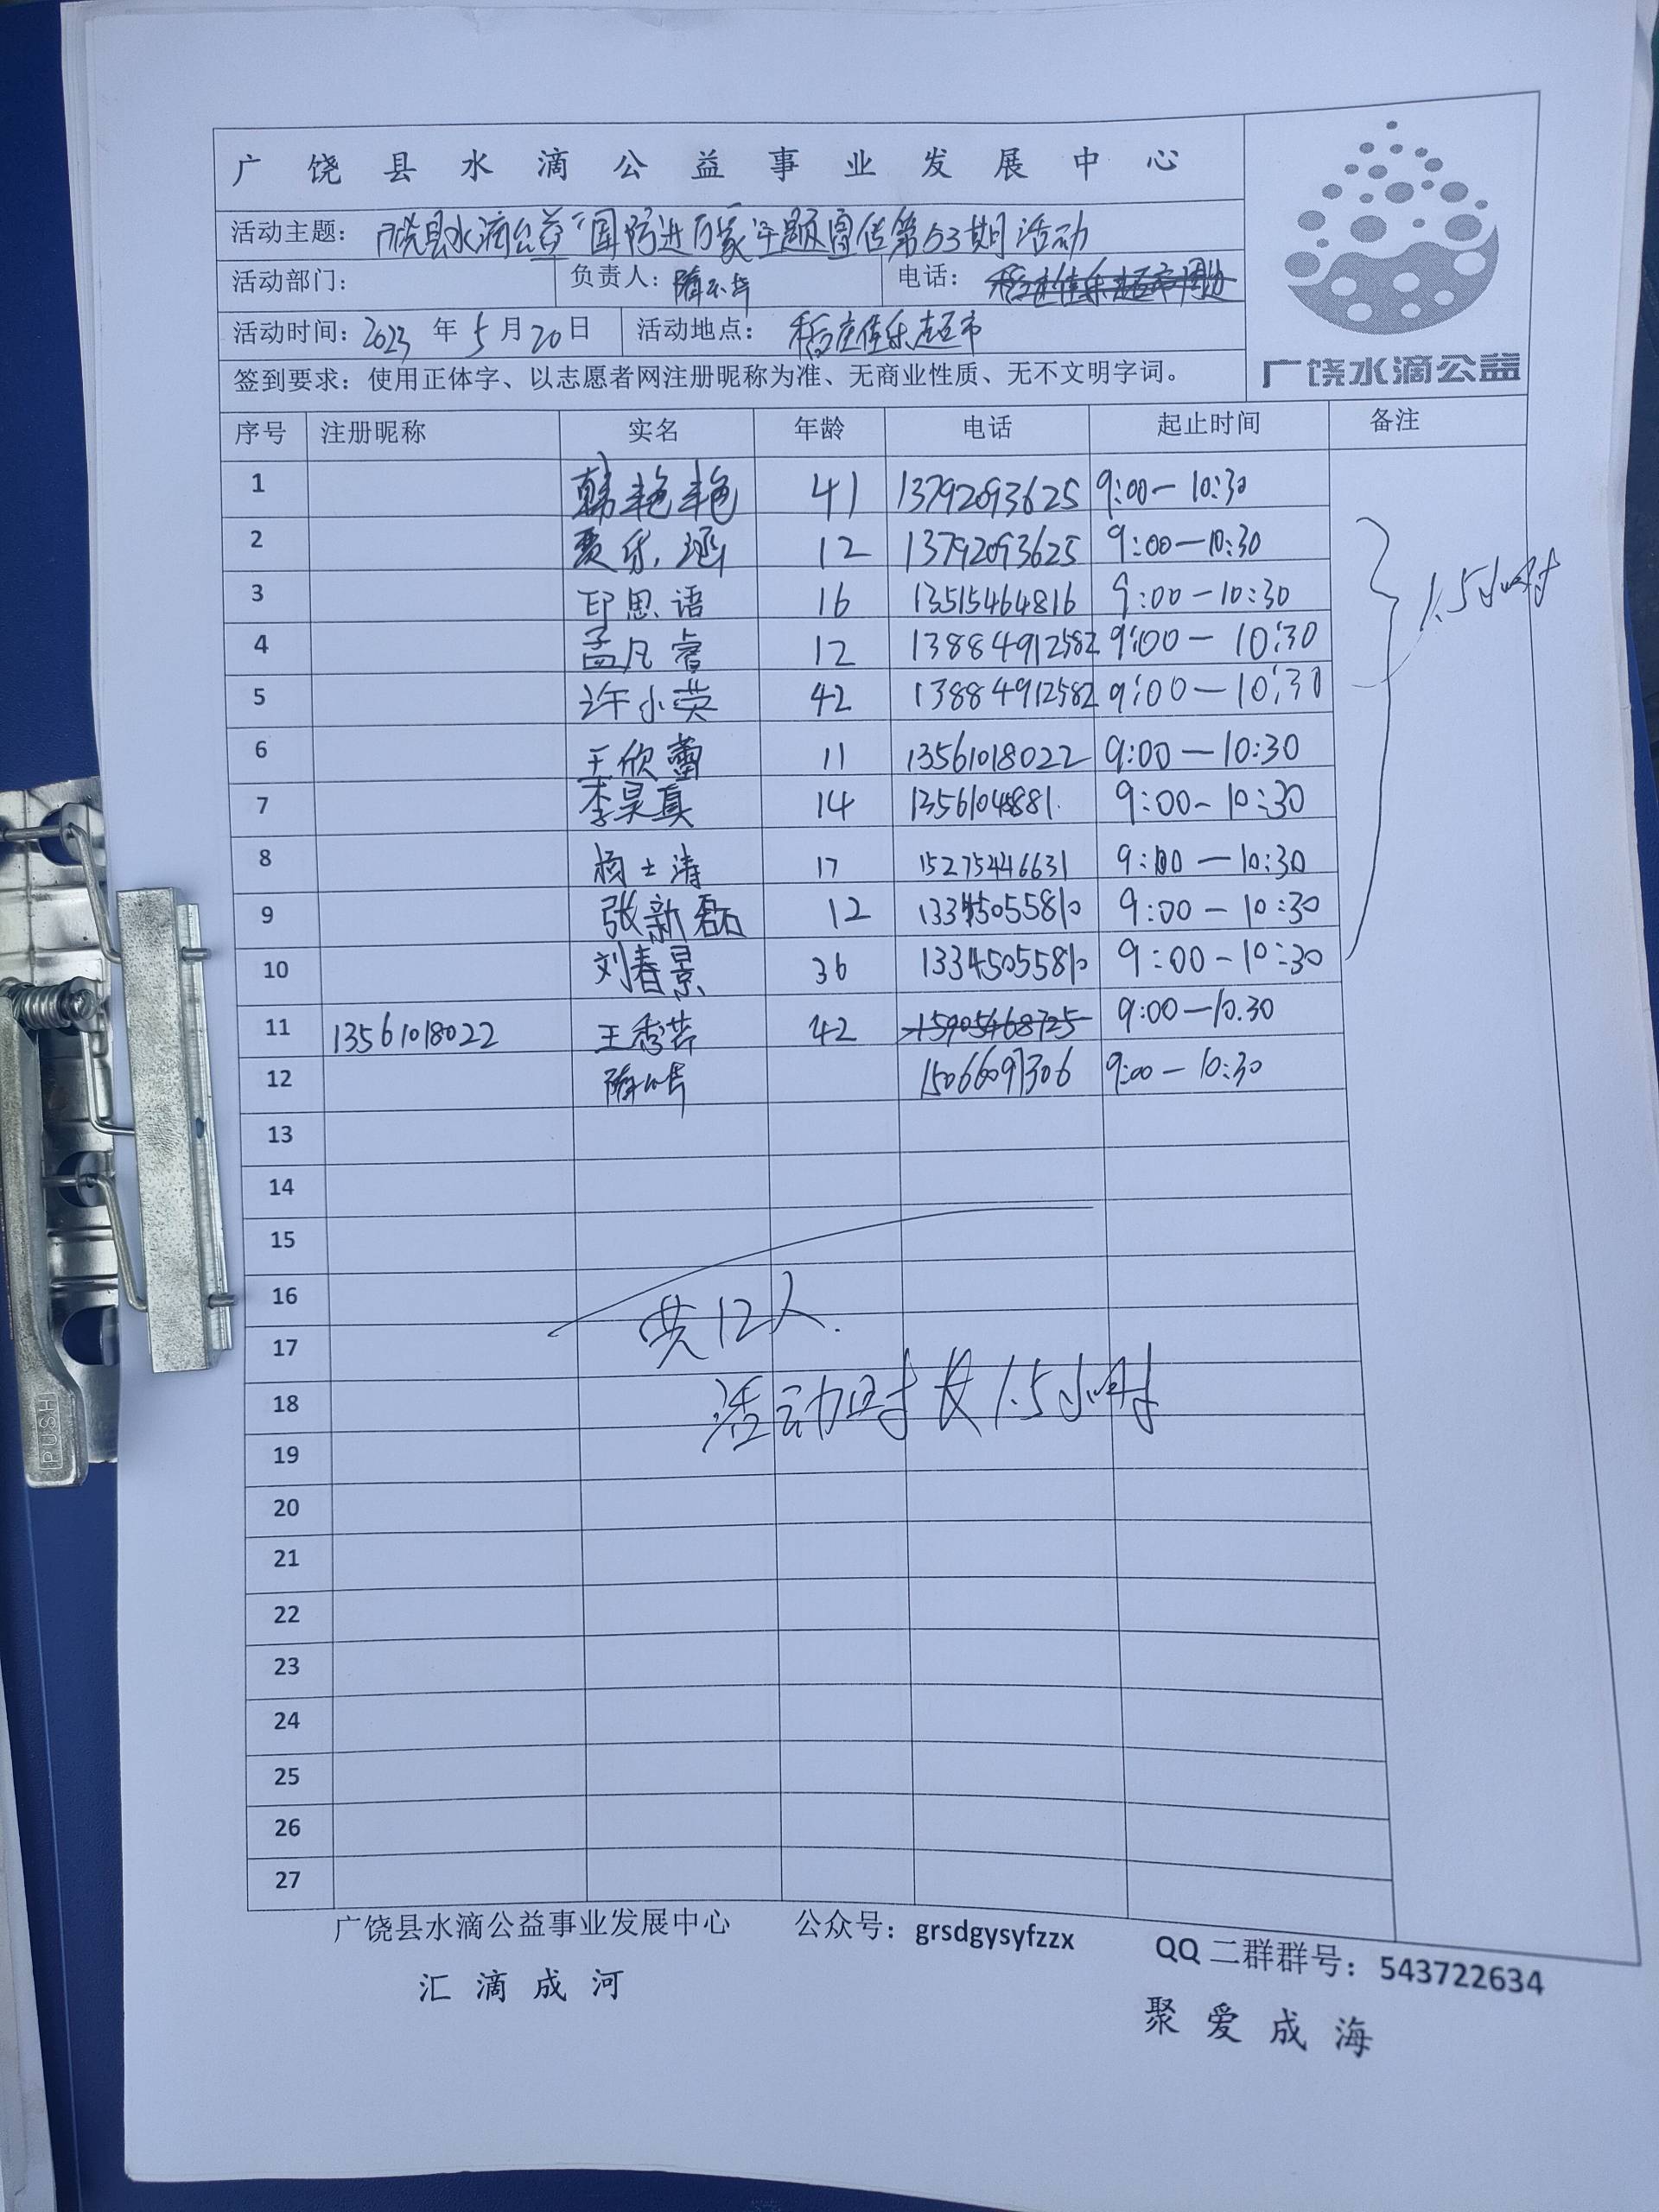 广饶县水滴公益事业发展中心
活动主题：广饶县水滴公益"国防进万家主题宣传第53期活动
活动部门： 负责人： 电话：
活动时间：2023 年 5 月 20 日 活动地点：稻庄佳乐超市
签到要求：使用正体字、以志愿者网注册昵称为准、无商业性质、无不文明字词。
广饶水滴公益
序号 注册昵称 实名 年龄 电话 起止时间 备注
1 韩艳艳 41 13792093625 9:00—10:30
2 贾乐涵 12 13792093625 9:00—10:30
3 印思语 16 13515464816 9:00—10:30
1.5小时
4 孟凡睿 12 13884912582 9:00—10:30
5 许小荧 42 13884912582 9:00—10:30
6 王欣蕾 11 13561018022 9:00—10:30
7 李昊真 14 9:00-10:30
8 杨士涛 17 15275446631 9:00—10:30
9 张新磊 12 13345055810 9:00-10:30
10 刘春景 36 13345055810 9:00-10:30
11 13561018022 王秀芹 42 15905468725 9:00—10.30
12 15066097306 9:00—10:30
13
14
15
16
共12人.
17
18 活动时长1.5小时
19
20
21
22
23
24
25
26
27
广饶县水滴公益事业发展中心 公众号：grsdgysyfzzx QQ 二群群号：543722634
汇滴成河
聚爱成海
PUSH